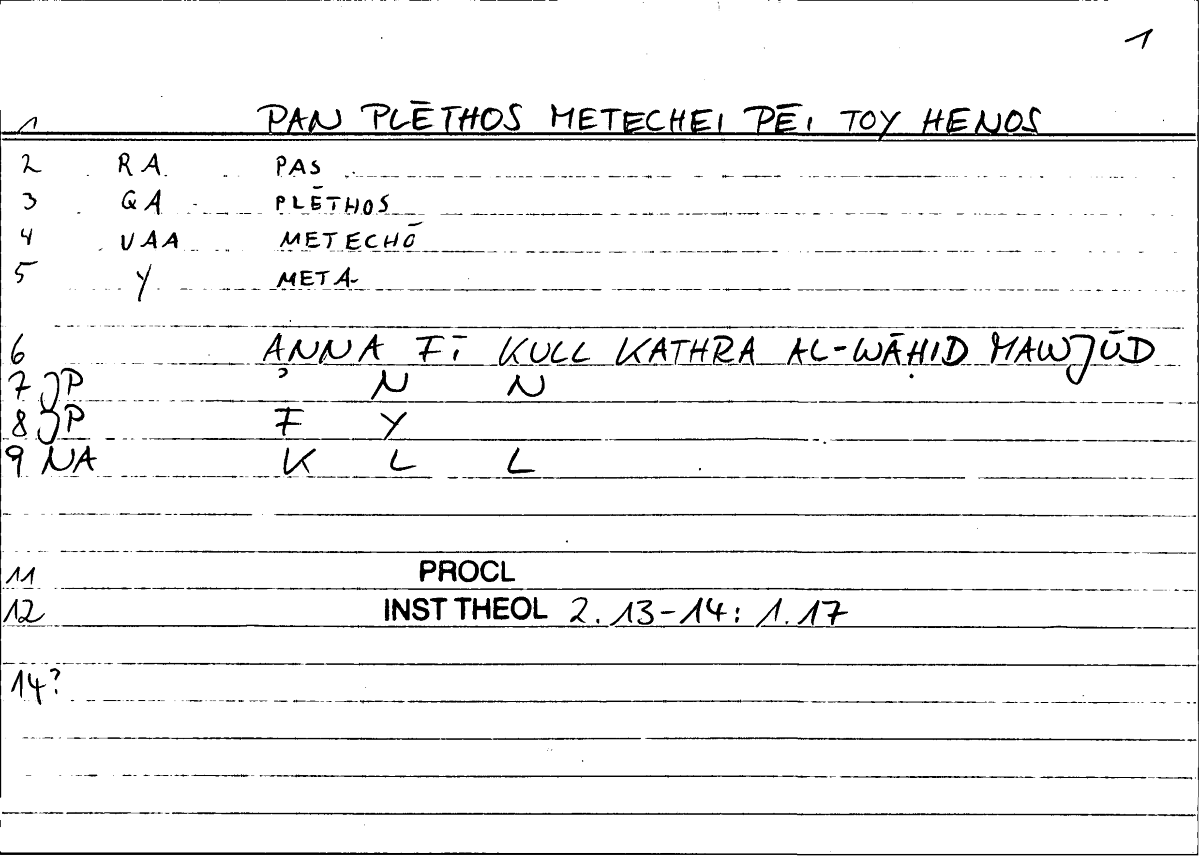 1
1 PAN PLĒTHOS METECHEI PĒI TOY HENOS
2 RA PAS
3 QA PLĒTHOS
4 VAA METECHŌ
5 Y META-
6 ANNA FĪ KULL KATHRA AL-WĀḤID MAWJŪD
7 JP ʾ N N
8 JP F Y
9 NA K L L
11 PROCL
12 INST THEOL 2.13-14: 1.17
14?